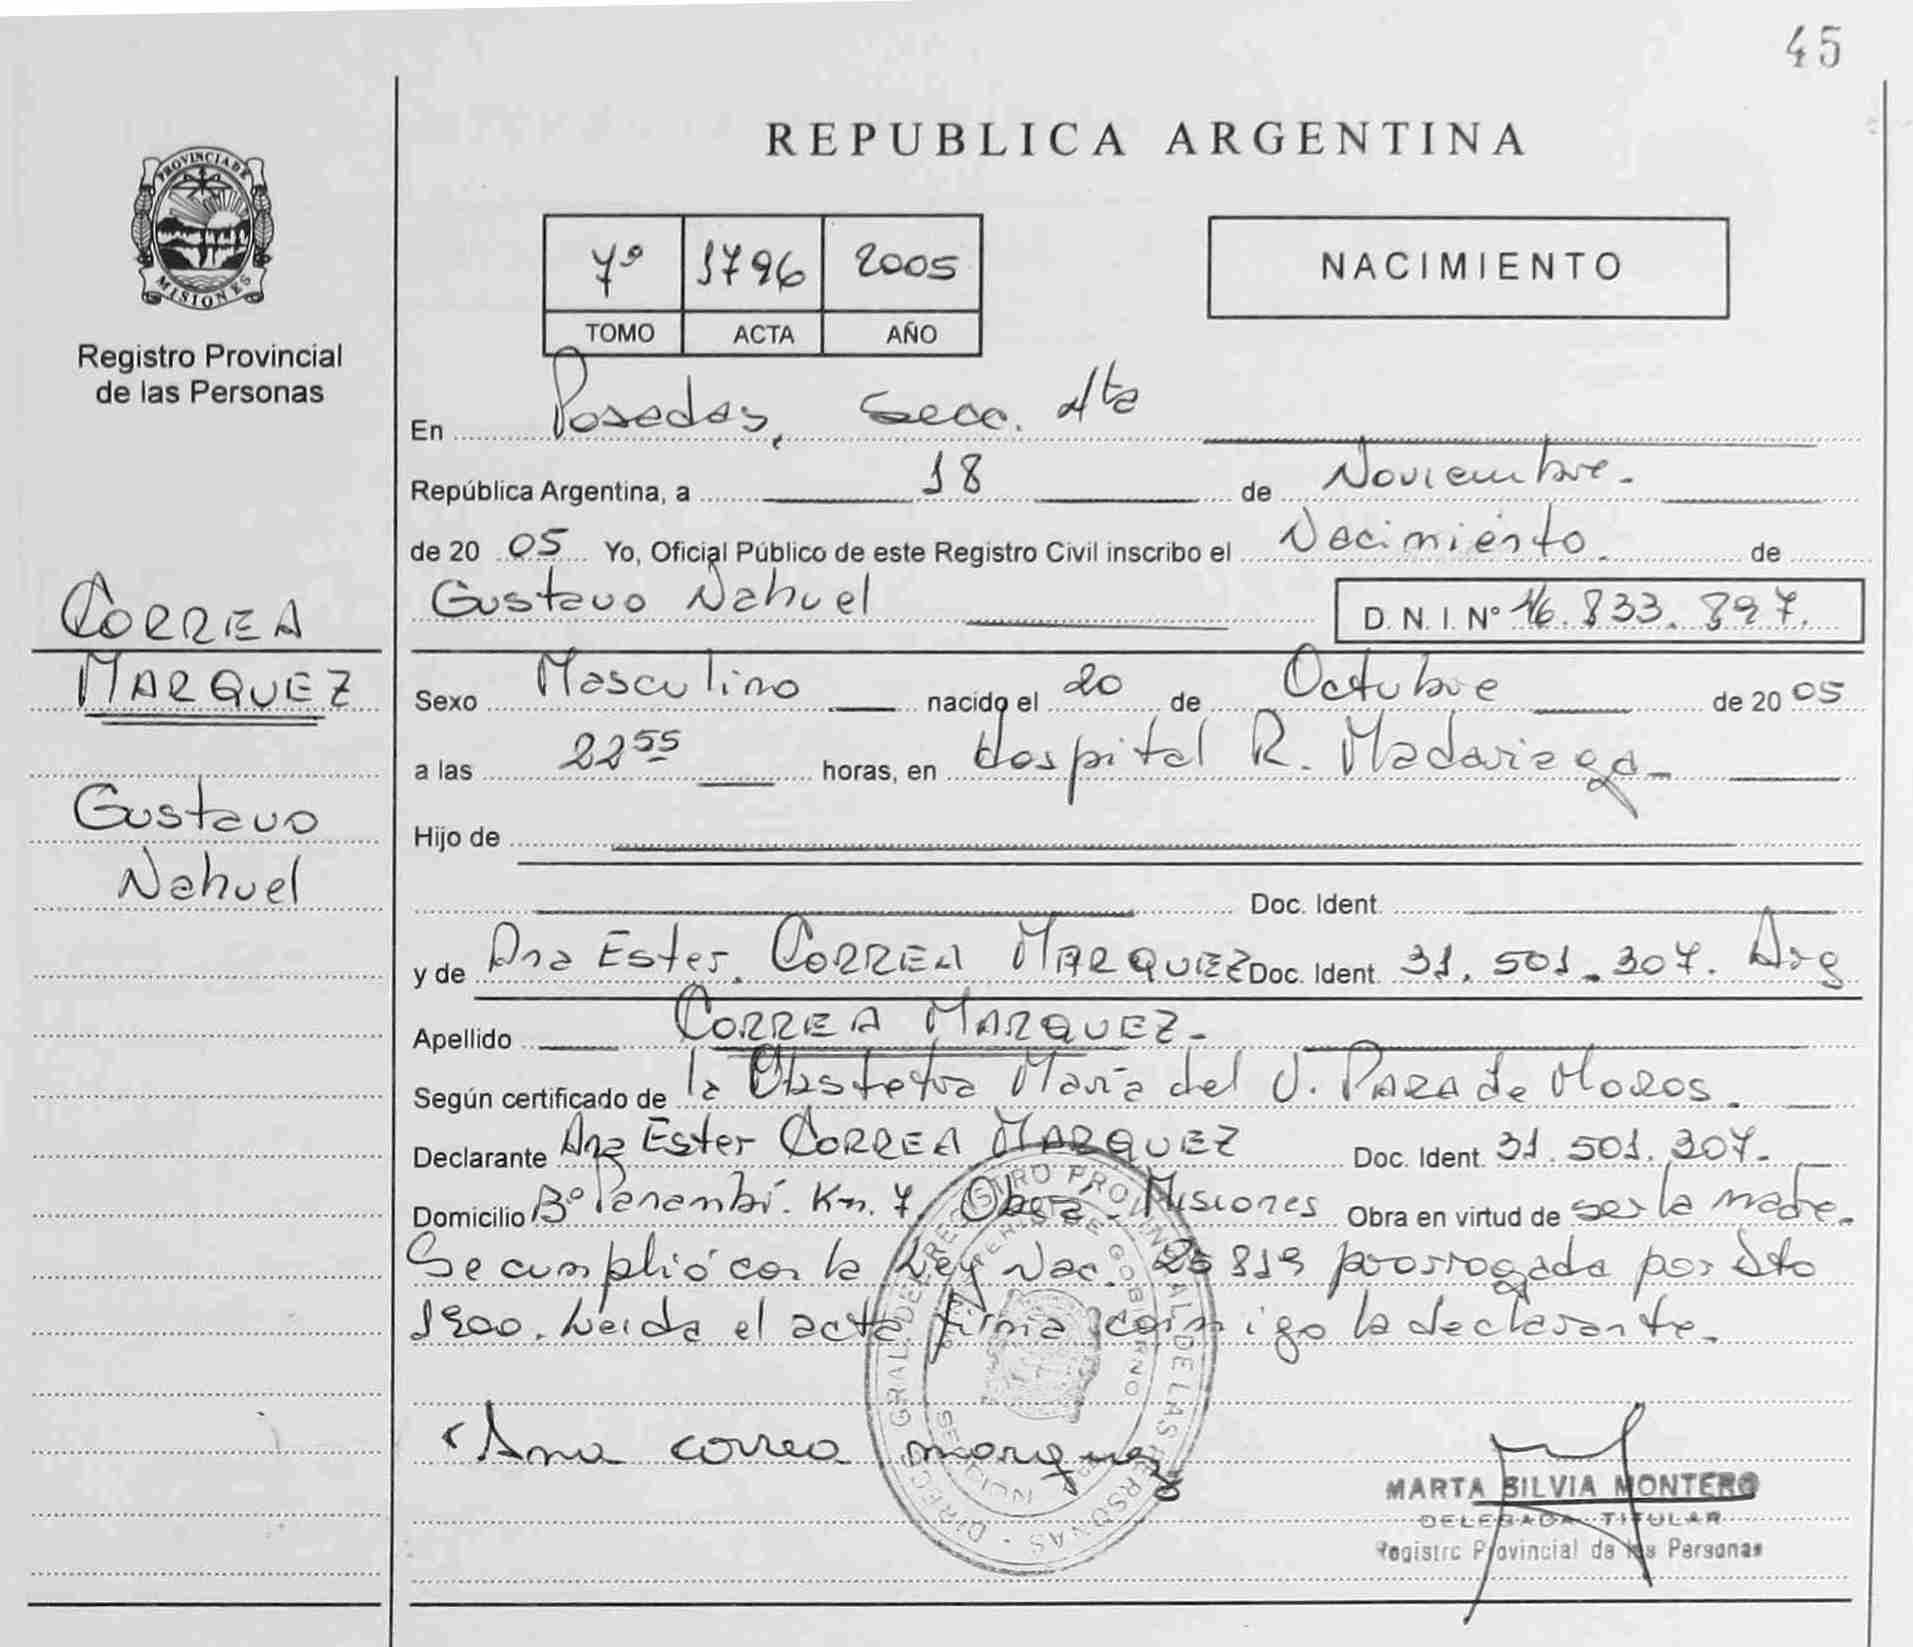 45
REPUBLICA ARGENTINA
PROVINCIA DE
MISIONES
Registro Provincial
de las Personas
7º 1796 2005
TOMO ACTA AÑO
NACIMIENTO
CORREA
MARQUEZ
Gustavo
Nahuel
En Posadas, Secc. 4ta
República Argentina, a 18 de Noviembre.
de 20 05 Yo, Oficial Público de este Registro Civil inscribo el Nacimiento. de
Gustavo Nahuel D. N. I. Nº 46.833.897.
Sexo Masculino nacido el 20 de Octubre de 20 05
a las 22 55 horas, en Hospital R. Madariaga
Hijo de
Doc. Ident.
y de Ana Ester. CORREA MARQUEZ Doc. Ident. 31.501.307. Arg
Apellido CORREA MARQUEZ.
Según certificado de la Obstetra María del J. PARA de MOROS.
Declarante Ana Ester CORREA MARQUEZ Doc. Ident. 31.501.307.
Domicilio Bº Panambí. Km. 7. Oberá. Misiones Obra en virtud de ser la madre.
Se cumplió con la Ley Nac. 25819 prorrogada por Dto
1900. Leida el acta firma conmigo la declarante.
Ana correa marquez
MARTA SILVIA MONTERO
DELEGADA TITULAR
Registro Provincial de las Personas